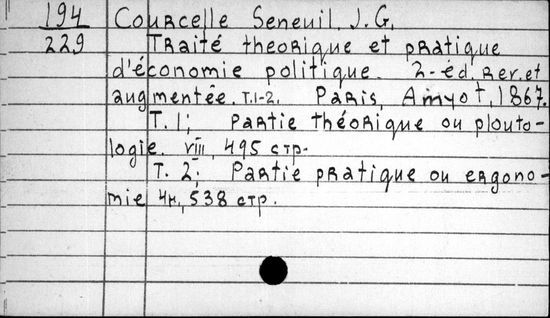 194 Courcelle Seneuil, J.G.
229 Traité theorique et pratique
d'économie politique. 2-éd. Rev. et
augmentée. T.1-2. Paris, Amyot, 1867.
T. 1; Partie théorique ou plouto-
logie. VIII, 495 стр.
T. 2; Partie pratique ou ergono-
mie 4н., 538 стр.